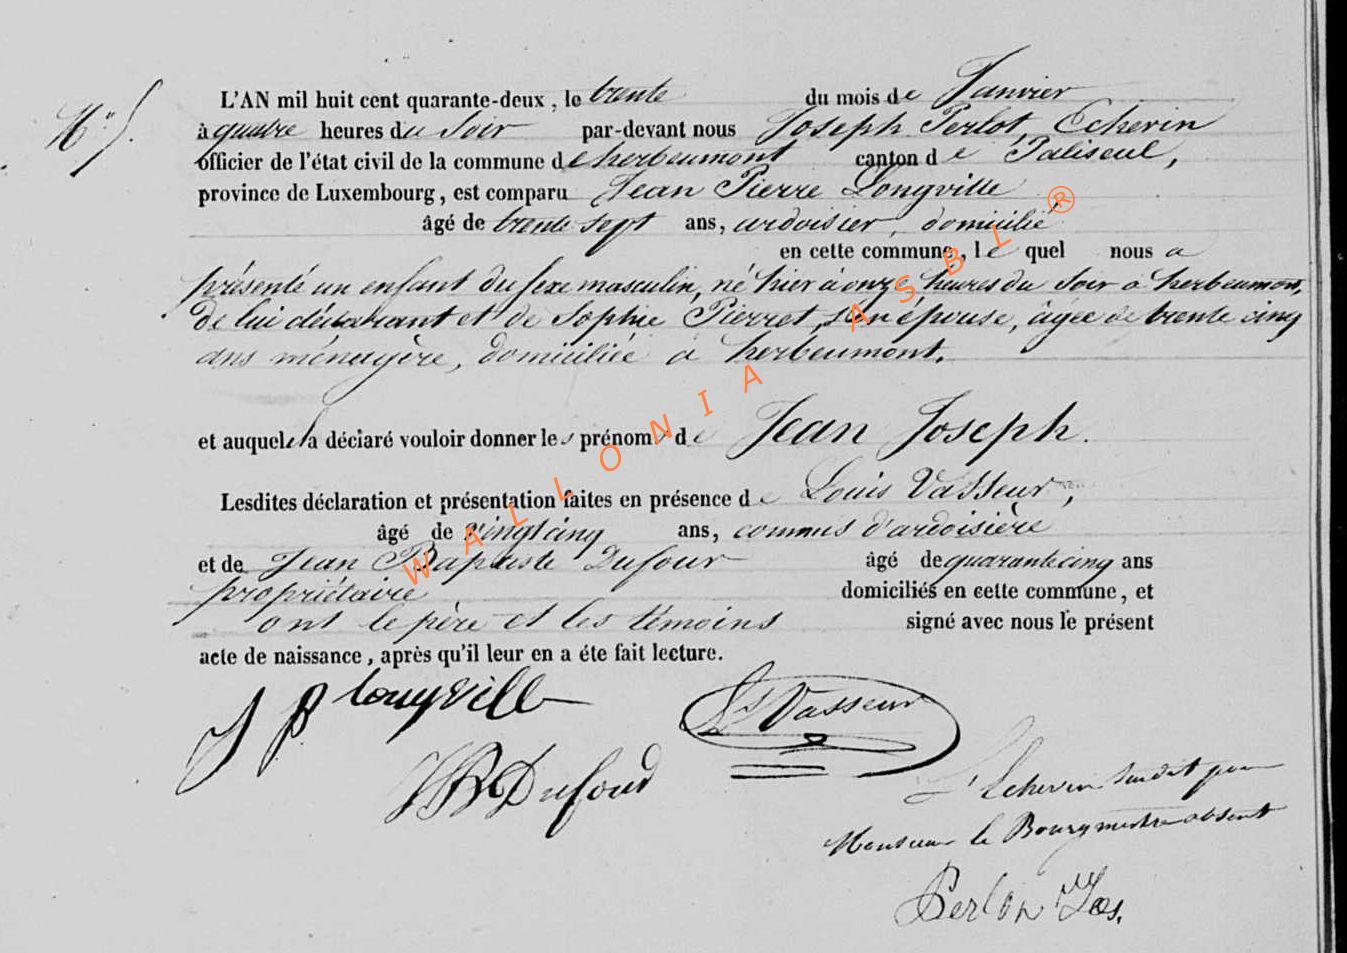 N° 5.
L'AN mil huit cent quarante-deux, le trente du mois de Janvier
à quatre heures du Soir par-devant nous Joseph Perlot, Echevin
officier de l'état civil de la commune de herbeumont canton de Paliseul,
province de Luxembourg, est comparu Jean Pierre Longville
âgé de trente sept ans, ardoisier, domicilié
en cette commune, lequel nous a
présenté un enfant du sexe masculin, né hier à onze heures du Soir à herbeumont,
de lui déclarant et de Sophie Pierret, son épouse, âgée de trente cinq
ans ménagère, domiciliée à herbeumont.
et auquel il a déclaré vouloir donner les prénoms de Jean Joseph.
Lesdites déclaration et présentation faites en présence de Louis Vasseur,
âgé de vingt cinq ans, commis d'ardoisière
et de Jean Baptiste Dufour âgé de quarante cinq ans
propriétaire domiciliés en cette commune, et
ont le père et les témoins signé avec nous le présent
acte de naissance, après qu'il leur en a éte fait lecture.
J P Longville
Ls Vasseur
JB Dufour
L'Echevin Susdit pour
Monsieur le Bourgmestre absent
Perlot Jos.
WALLONIA ASBL ®